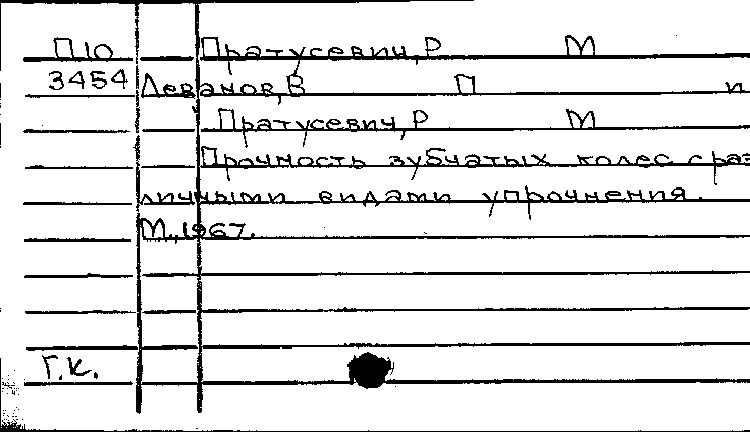 П10 Пратусевич, Р М
3454 Леванов, В П и
Пратусевич, Р М
Прочность зубчатых колес с раз
личными видами упрочнения.
М., 1967.
Г.К.